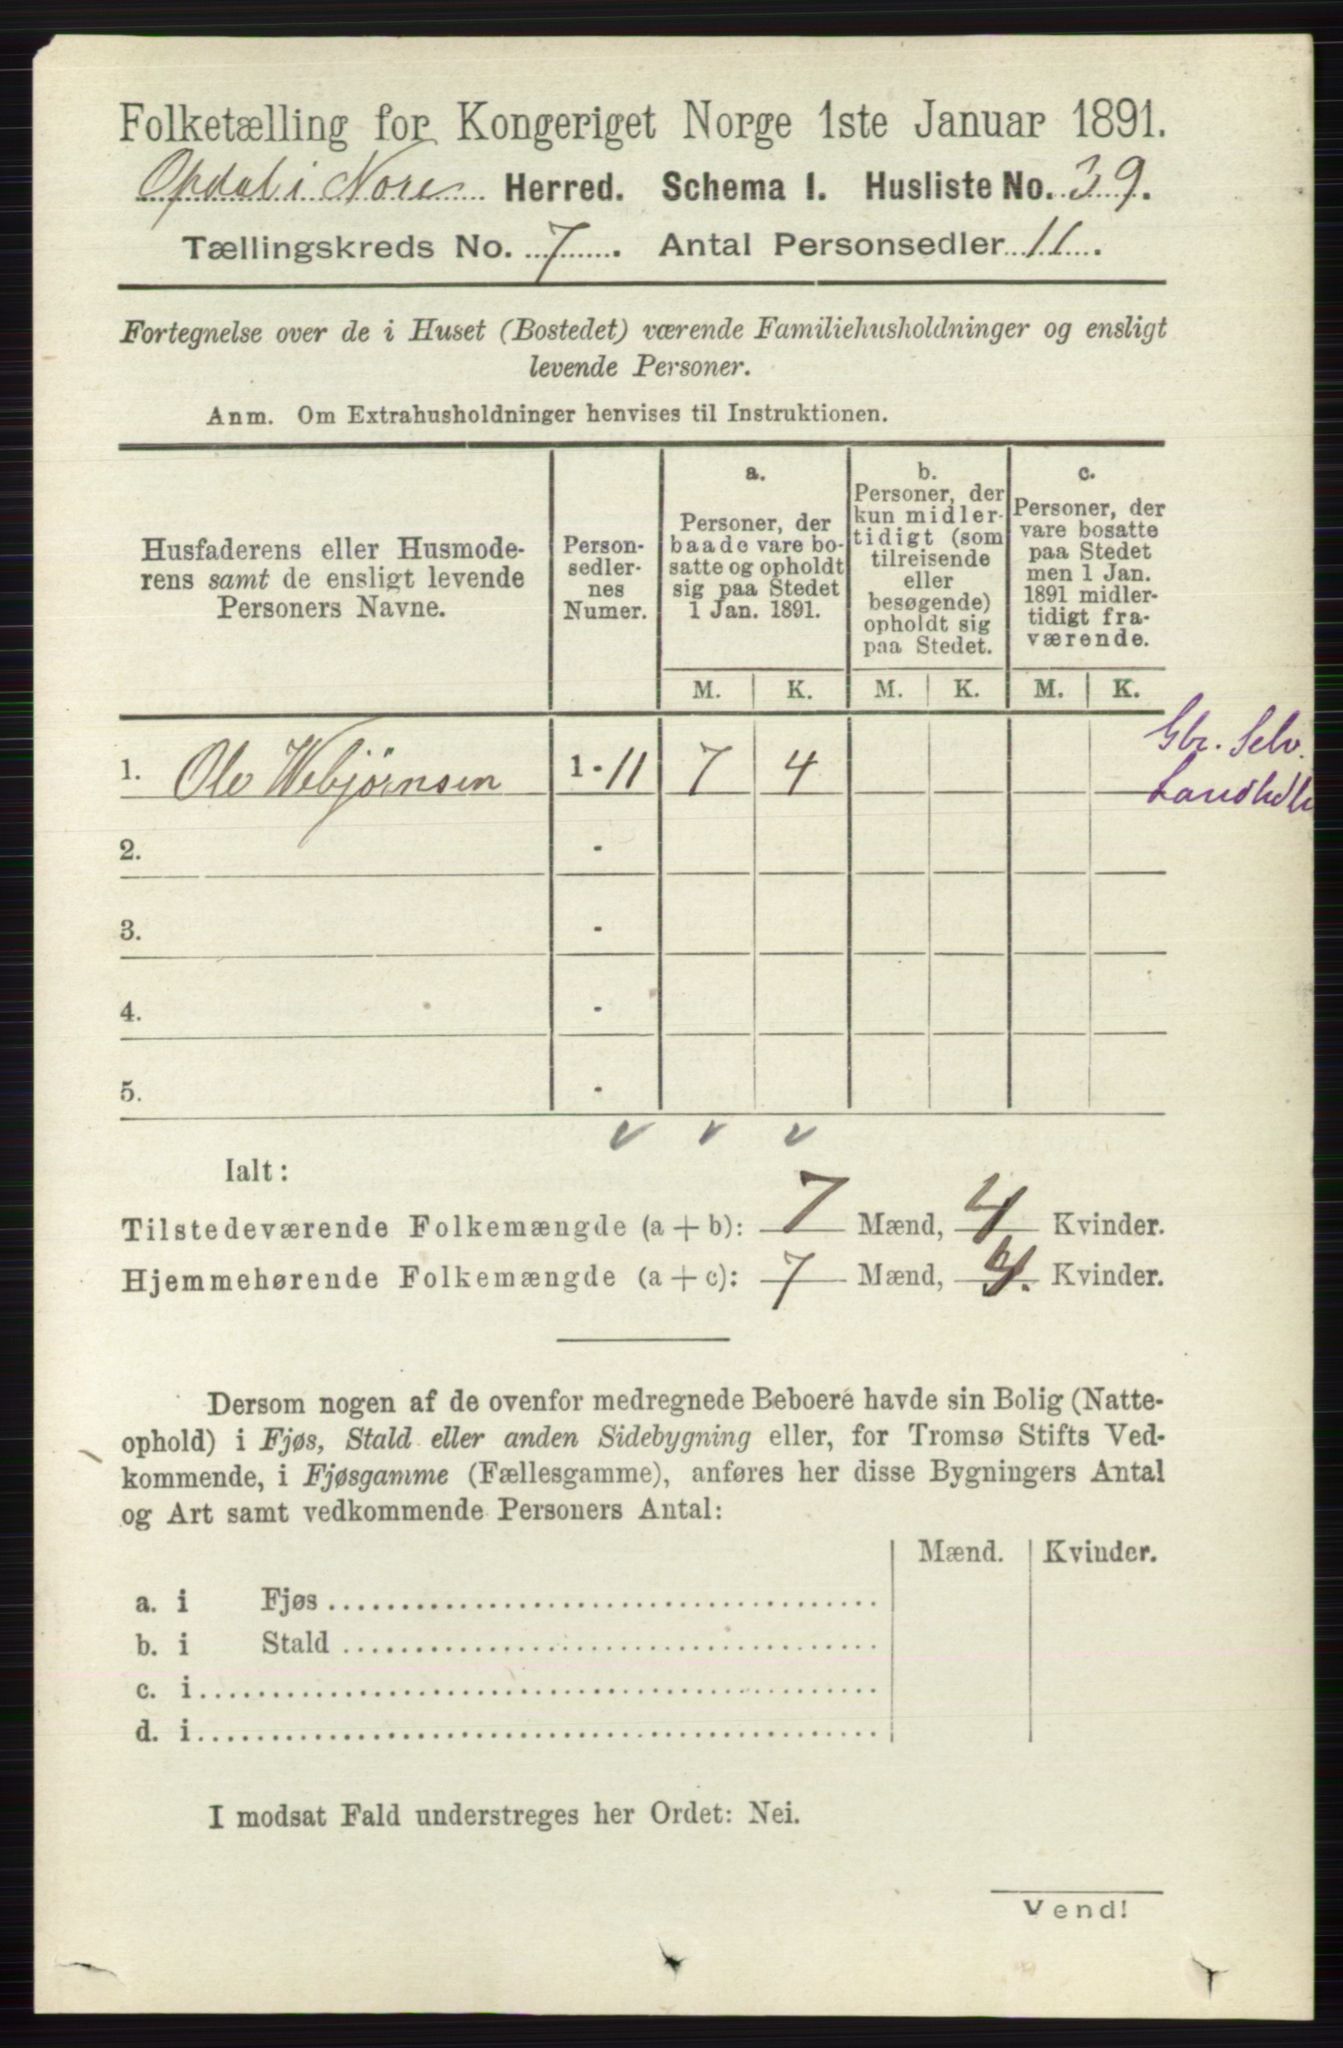 Folketælling for Kongeriget Norge 1ste Januar 1891.
Opdal i Nore Herred. Schema 1. Husliste No. 39.
Tællingskreds No. 7. Antal Personsedler 11.
Fortegnelse over de i Huset (Bostedet) værende Familiehusholdninger og ensligt
levende Personer.
Anm. Om Extrahusholdninger henvises til Instruktionen.
Husfaderens eller Husmode-
rens samt de ensligt levende
Personers Navne.
Person-
sedler-
nes
Numer.
a.
Personer, der
baade vare bo-
satte og opholdt
sig paa Stedet
1 Jan. 1891.
b.
Personer, der
kun midler-
tidigt (som
tilreisende
eller
besøgende)
opholdt sig
paa Stedet.
c.
Personer, der
vare bosatte
paa Stedet
men 1 Jan.
1891 midler-
tidigt fra-
værende.
M. K. M. K. M. K.
1. Ole Webjørnsen 1 - 11 7 4
Gbr. Selv.
2. -
3. -
4. -
5. -
Ialt:
Tilstedeværende Folkemængde (a + b): 7 Mænd, 4 Kvinder.
Hjemmehørende Folkemængde (a + c): 7 Mænd, 4. Kvinder.
Dersom nogen af de ovenfor medregnede Beboere havde sin Bolig (Natte-
ophold) i Fjøs, Stald eller anden Sidebygning eller, for Tromsø Stifts Ved-
kommende, i Fjøsgamme (Fællesgamme), anføres her disse Bygningers Antal
og Art samt vedkommende Personers Antal:
Mænd. Kvinder.
a. i Fjøs
b. i Stald
c. i
d. i
I modsat Fald understreges her Ordet: Nei.
Vend!